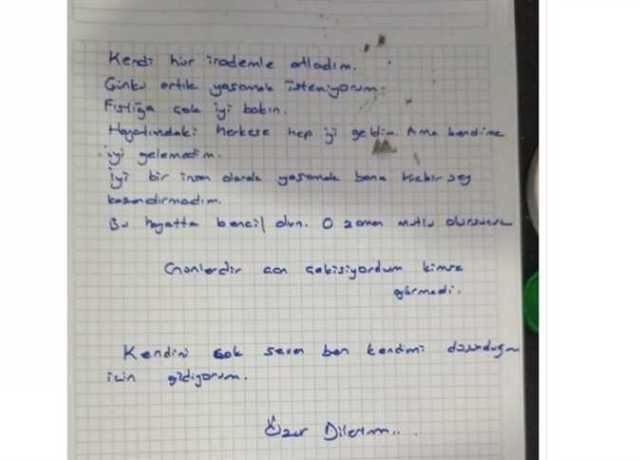 Kendi hür irademle atladım.
Çünkü artık yaşamak istemiyorum.
Fıstığa çok iyi bakın.
Hayatımdaki herkese hep iyi geldim Ama kendime
iyi gelemedim.
iyi bir insan olarak yaşamak bana hiçbir şey
kazandırmadım.
Bu hayatta bencil olun. O zaman mutlu olursunuz
can çekişiyordum kimse
görmedi.
Kendini çok sevin ben kendimi
için gidiyorum.
Özür Dilerim...